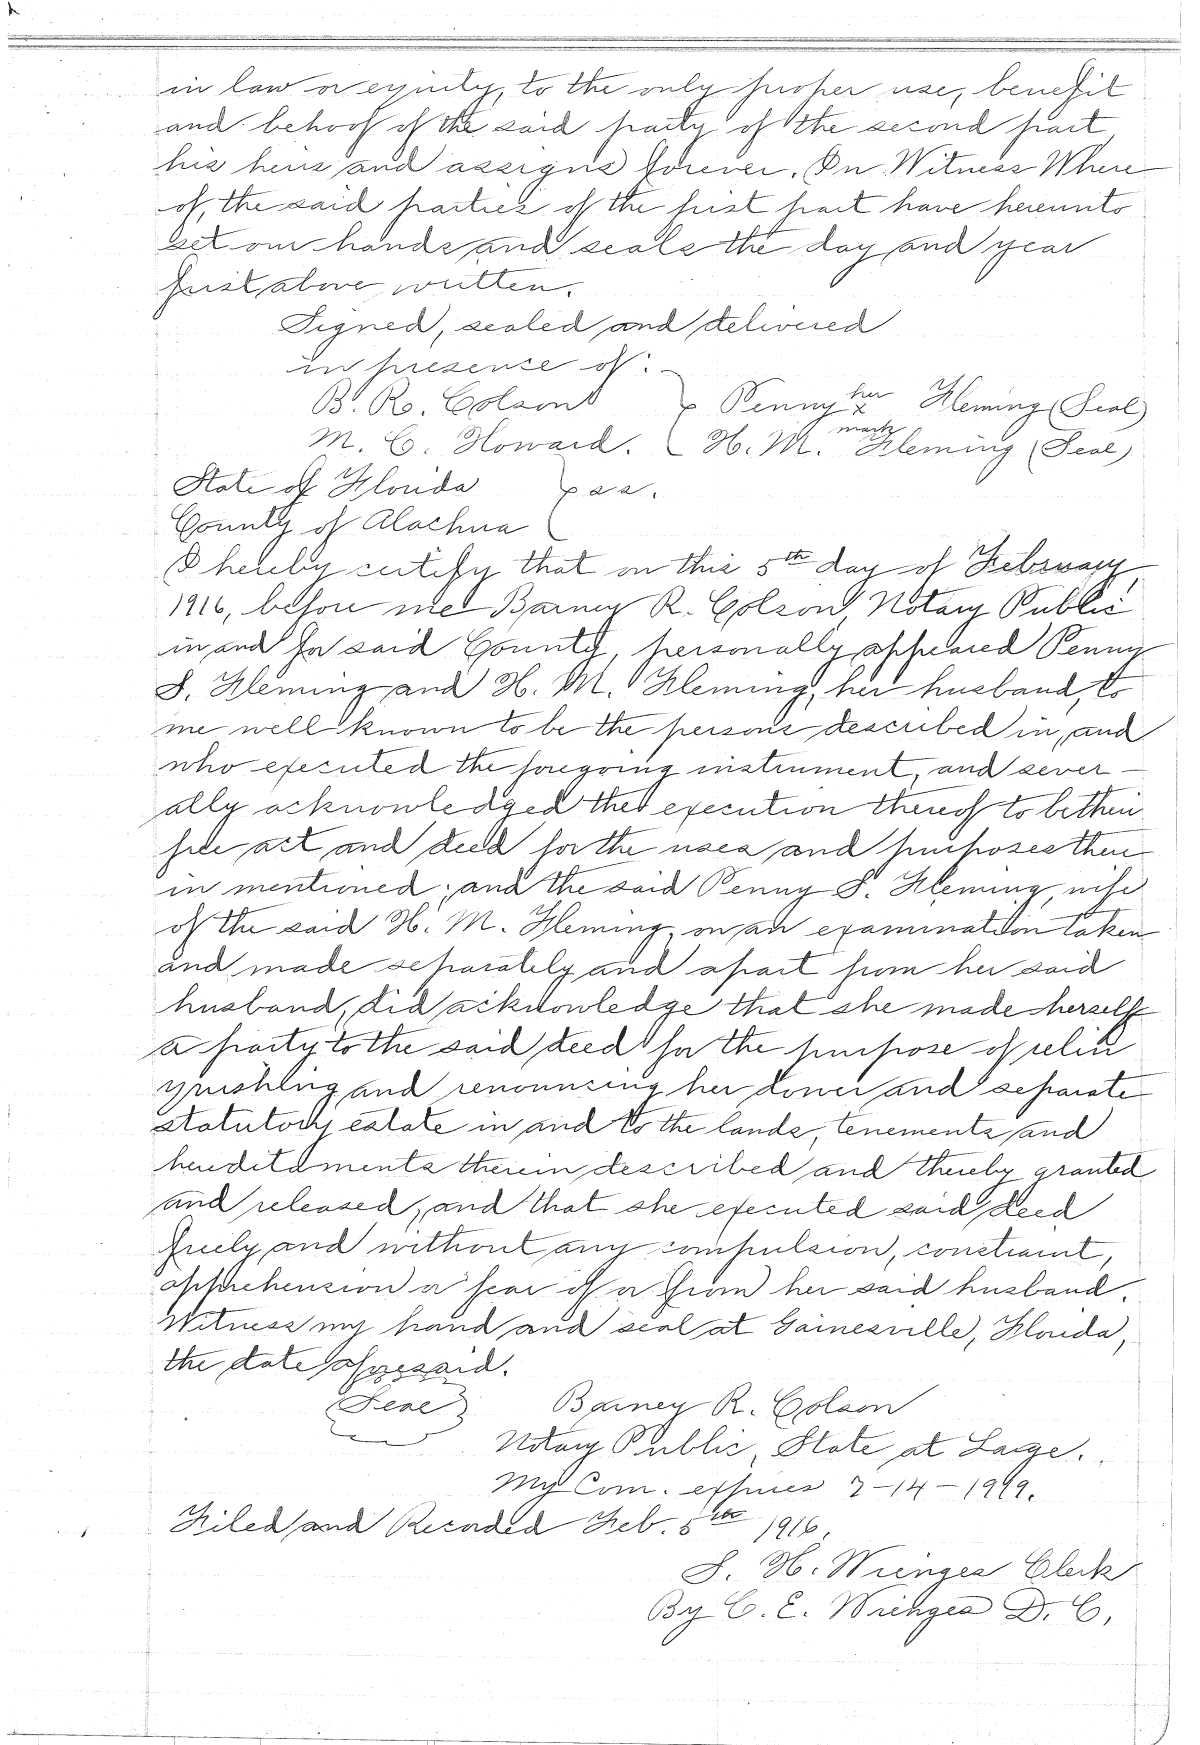 in law or equity, to the only proper use, benefit
and behoof of the said party of the second part
his heirs and assigns forever. In Witness Where
of, the said parties of the first part have hereunto
set our hands and seals the day and year
first above written.
Signed, sealed and delivered
in presence of:
B. R. Colson } Penny her x mark Fleming (Seal)
M. C. Howard. H. M. Fleming (Seal)
State of Florida } ss.
County of Alachua
I hereby certify that on this 5th day of February,
1916, before me Barney R. Colson, Notary Public
in and for said County, personally appeared Penny
S. Fleming and H. M. Fleming, her husband, to
me well known to be the persons described in, and
who executed the foregoing instrument, and sever-
ally acknowledged the execution thereof to be their
free act and deed for the uses and purposes there
in mentioned; and the said Penny S. Fleming, wife
of the said H. M. Fleming, on an examination taken
and made separately and apart from her said
husband, did acknowledge that she made herself
a party to the said deed for the purpose of relin
quishing and renouncing her dower and separate
statutory estate in and to the lands, tenements and
hereditaments therein described and thereby granted
and released, and that she executed said deed
freely and without any compulsion, constraint,
apprehension or fear of or from her said husband.
Witness my hand and seal at Gainesville, Florida,
the date aforesaid.
(Seal) Barney R. Colson
Notary Public, State at Large.
My Com. expires 7-14-1919.
Filed and Recorded Feb. 5th 1916.
S. H. Wienges Clerk
By C. E. Wienges D. C.